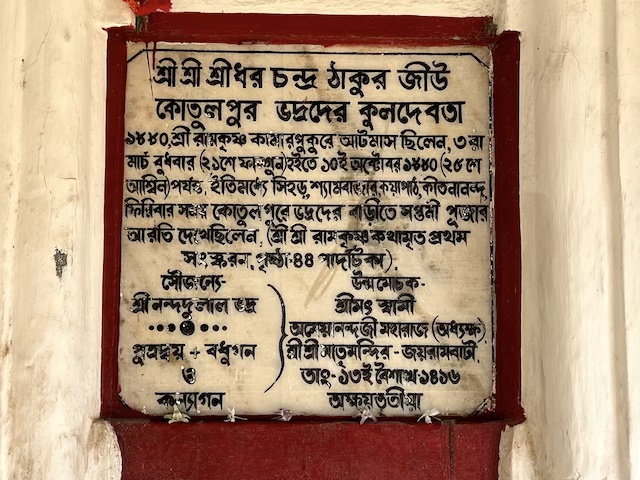 শ্রী শ্রী শ্রীধর চন্দ্র ঠাকুর জীউ
কোতুলপুর ভদ্রদের কুলদেবতা
১৮৮০, শ্রী রামকৃষ্ণ কামারপুকুরে আটমাস ছিলেন, ৩রা
মার্চ বুধবার (২১শে ফাল্গুন) হইতে ১০ই অক্টোবর ১৮৮০ (২৫শে
আশ্বিন) পর্যন্ত, ইতিমধ্যে সিহড়, শ্যামবাজার, কয়াপাঠ, কীর্তনানন্দ,
ফিরিবার সময় কোতুলপুরে ভদ্রদের বাড়িতে সপ্তমী পূজার
আরতি দেখেছিলেন, (শ্রী শ্রী রামকৃষ্ণ কথামৃত প্রথম
সংস্করন, পৃষ্ঠা-৪৪ পাদটিকা).
সৌজন্যে-
শ্রী নন্দদুলাল ভদ্র
পুত্রদ্বয় + বধুগন
ও
কন্যাগন
উন্মোচক-
শ্রীমৎ স্বামী
অমেয়ানন্দজী মহারাজ (অধ্যক্ষ),
শ্রীশ্রী মাতৃমন্দির - জয়রামবাটী,
তাং- ১৩ই বৈশাখ ১৪১৬
অক্ষয়তৃতীয়া